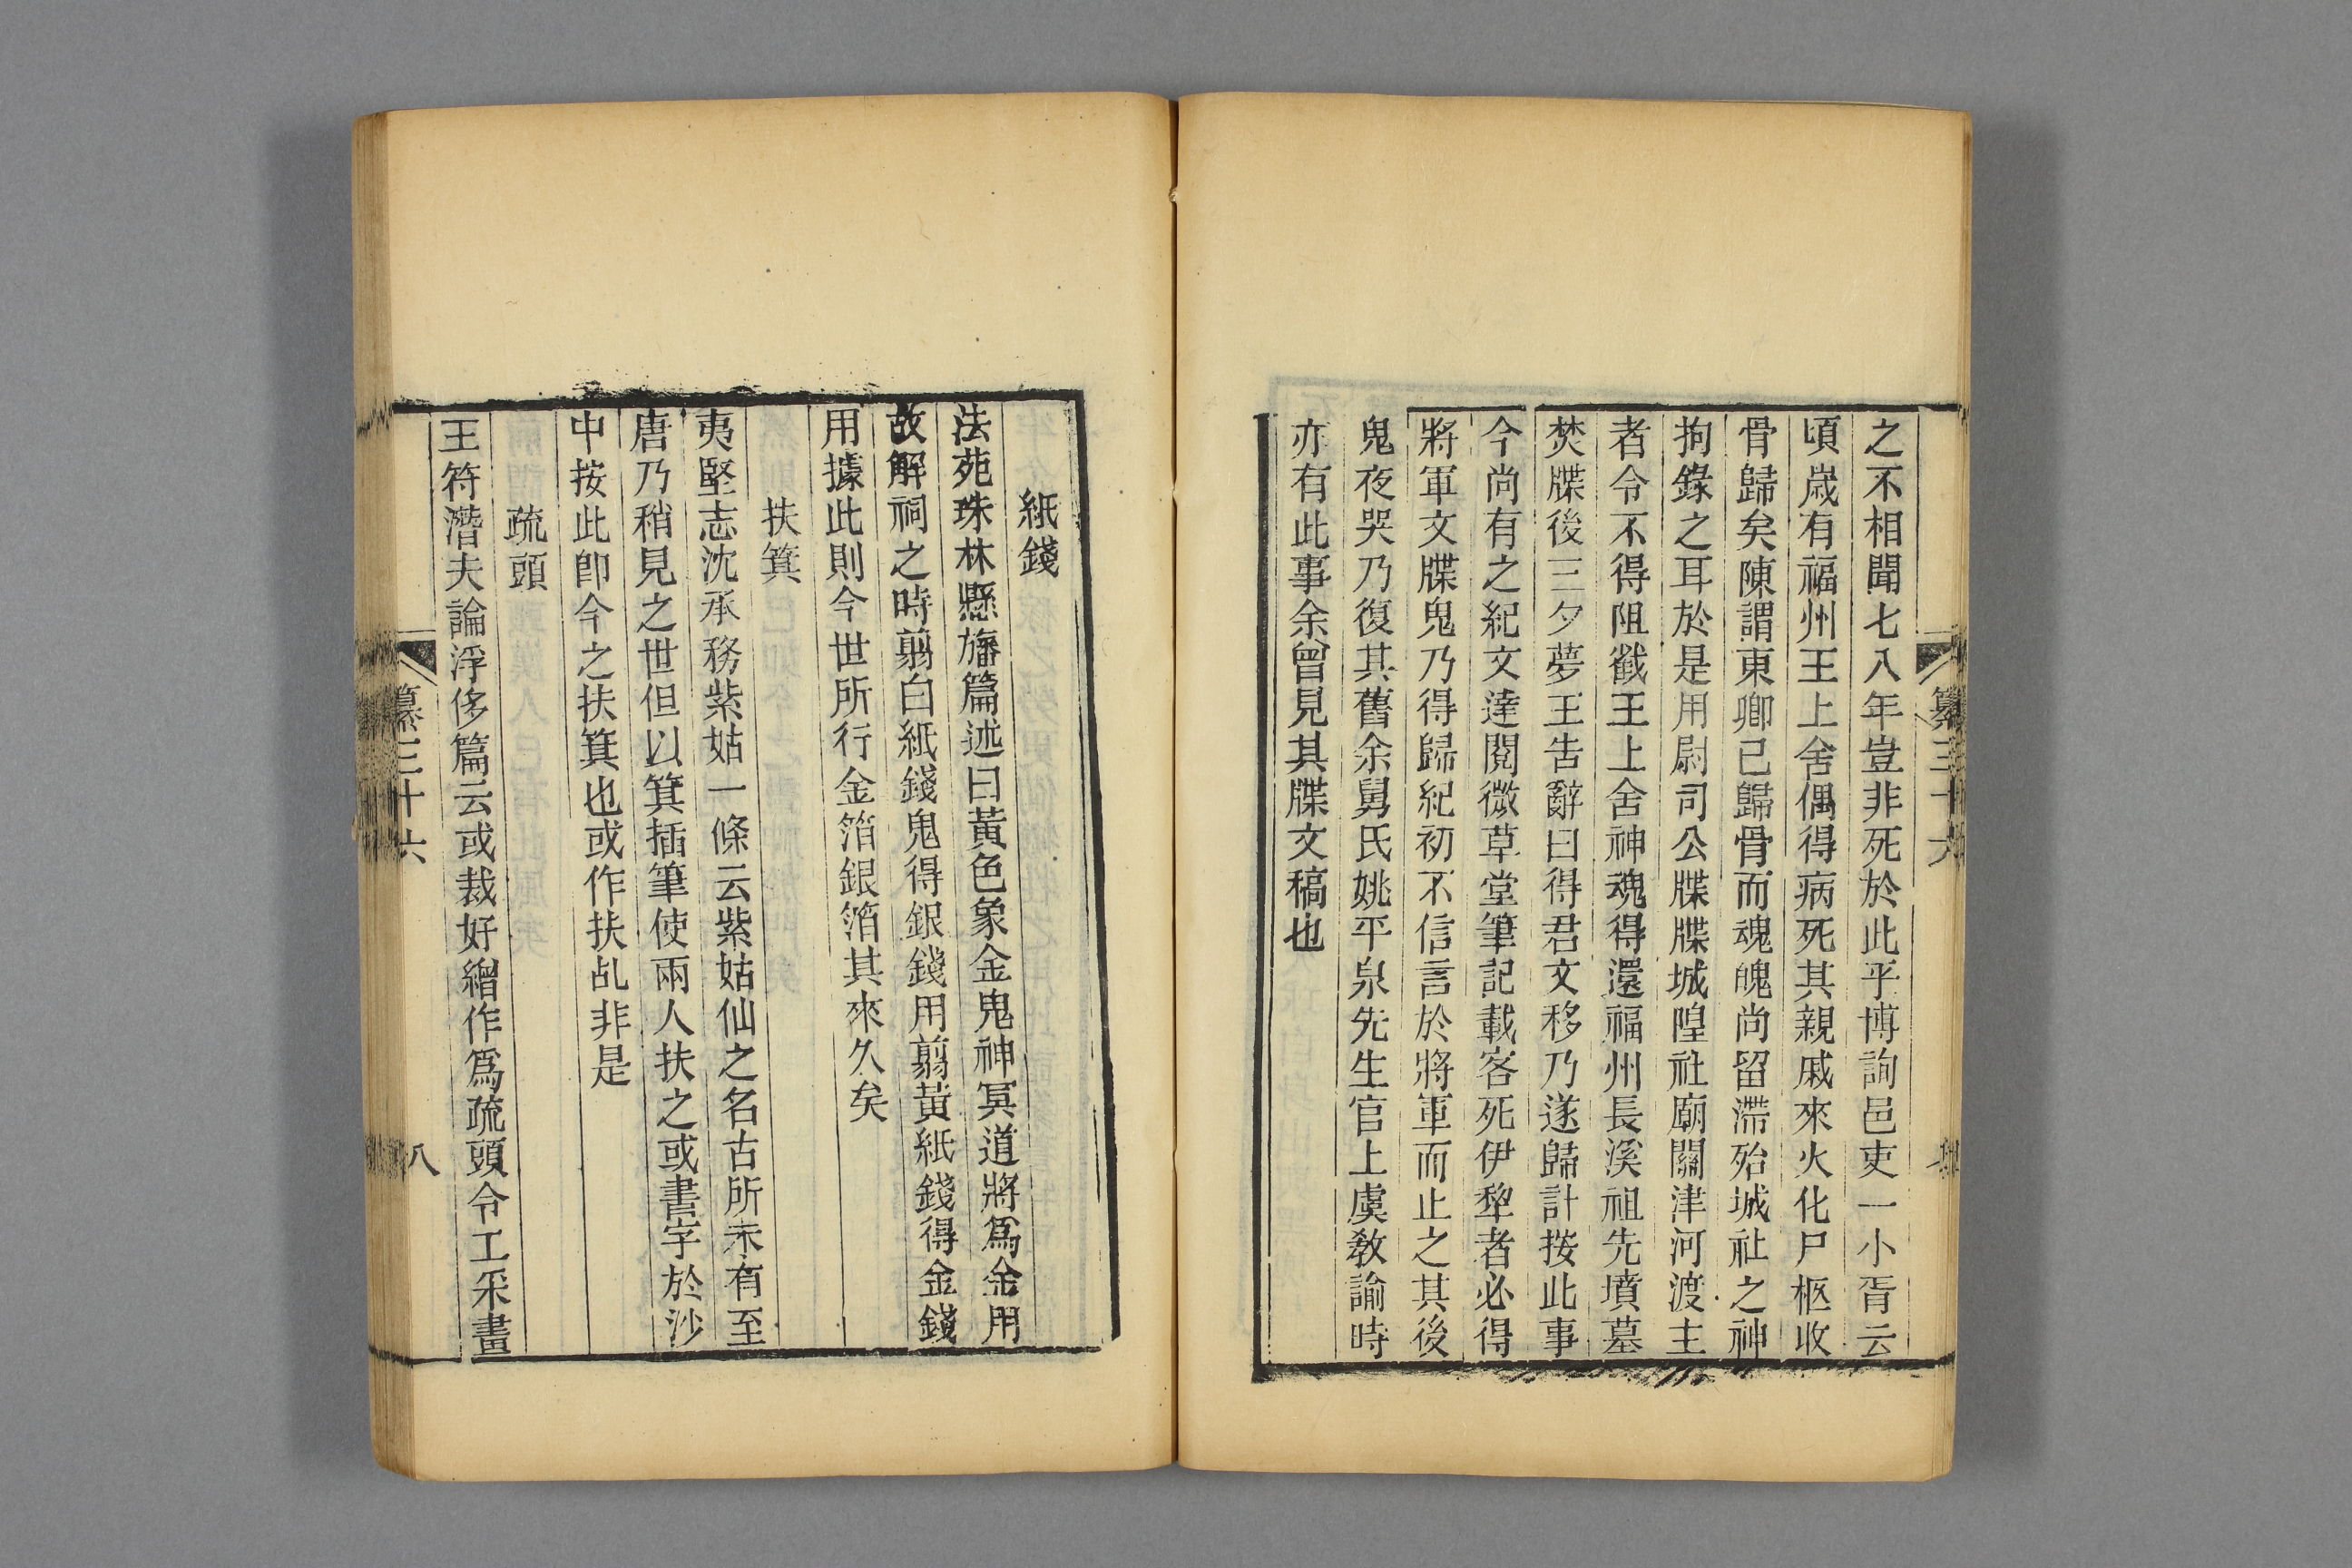 之不相聞七八年豈非死於此乎博詢邑吏一小胥云
頃歲有福州王上舍偶得病死其親戚來火化尸柩收
骨歸矣陳謂東卿已歸骨而魂魄尚留滯殆城社之神
拘錄之耳於是用尉司公牒牒城隍社廟關津河渡主
者令不得阻截王上舍神魂得還福州長溪祖先墳墓
焚牒後三夕夢王告辭曰得君文移乃遂歸計按此事
今尚有之紀文達閱微草堂筆記載客死伊犂者必得
將軍文牒鬼乃得歸紀初不信言於將軍而止之其後
鬼夜哭乃復其舊余舅氏姚平泉先生官上虞敎諭時
亦有此事余曾見其牒文稿也
纂三十六
紙錢
法苑珠林懸旛篇述曰黃色象金鬼神冥道將爲金用
故解祠之時翦白紙錢鬼得銀錢用翦黃紙錢得金錢
用據此則今世所行金箔銀箔其來久矣
扶箕
夷堅志沈承務紫姑一條云紫姑仙之名古所未有至
唐乃稍見之世但以箕插筆使兩人扶之或書字於沙
中按此卽今之扶箕也或作扶乩非是
疏頭
王符潛夫論浮侈篇云或裁好繒作爲疏頭令工采畫
纂三十六
八